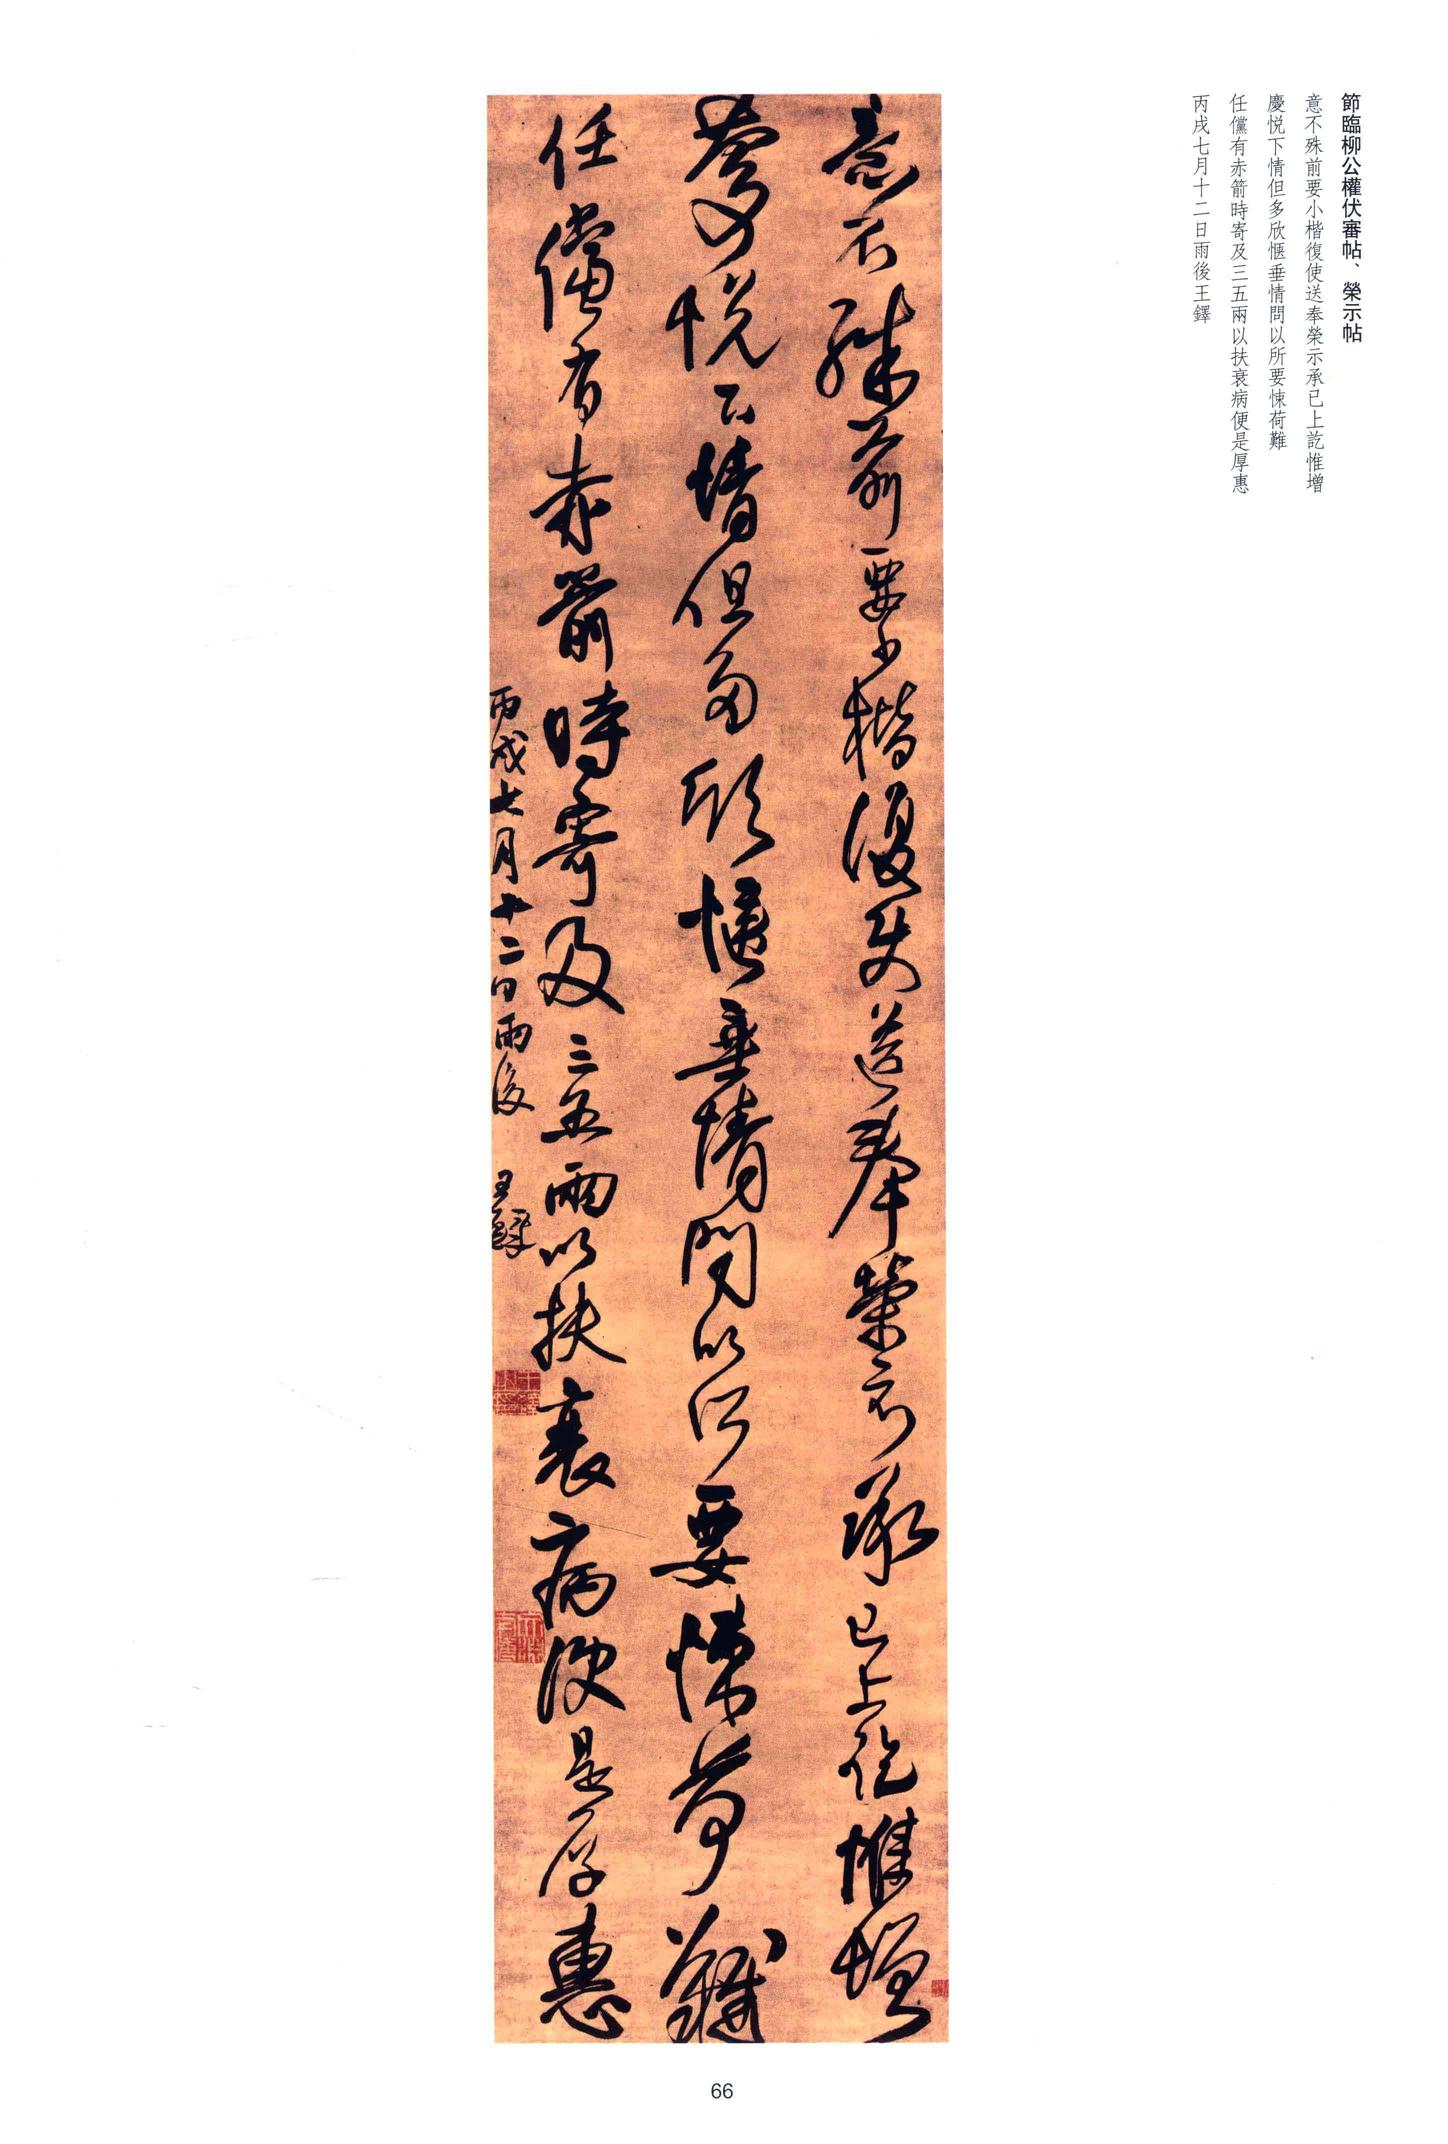 節臨柳公權伏審帖、榮示帖
意不殊前要小楷復使送奉榮示承已上訖惟增
慶悦下情但多欣愜垂情問以所要悚荷難
任儻有赤箭時寄及三五兩以扶衰病便是厚惠
丙戌七月十二日雨後王鐸
意不殊前要小楷復使送奉榮示承已上訖惟增
慶悦下情但多欣愜垂情問以所要悚荷難
任儻有赤箭時寄及三五兩以扶衰病便是厚惠
丙戌七月十二日雨後 王鐸
66